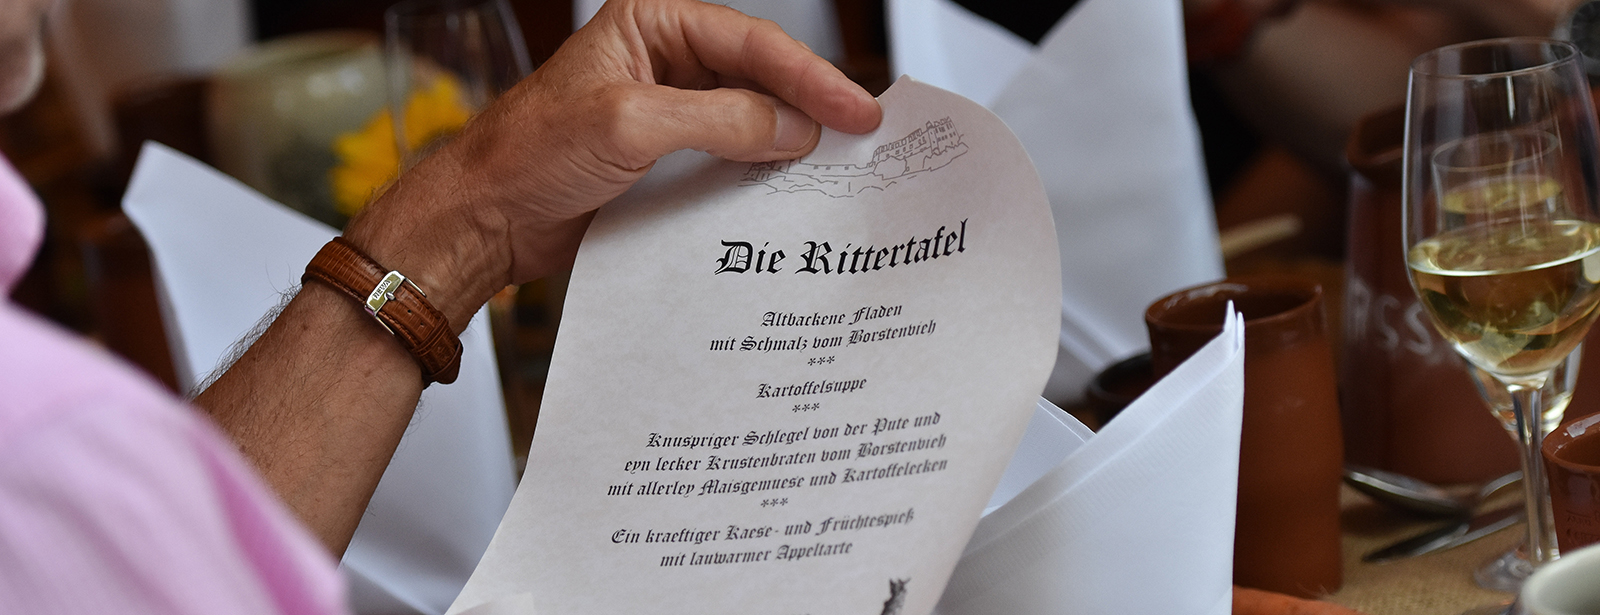 Die Rittertafel
Altbackene Fladen
mit Schmalz vom Borstenvieh
***
Kartoffelsuppe
***
Knuspriger Schlegel von der Pute und
eyn lecker Krustenbraten vom Borstenvieh
mit allerley Maisgemuese und Kartoffelecken
***
Ein kraeftiger Kaese- und Früchtespieß
mit lauwarmer Appeltarte